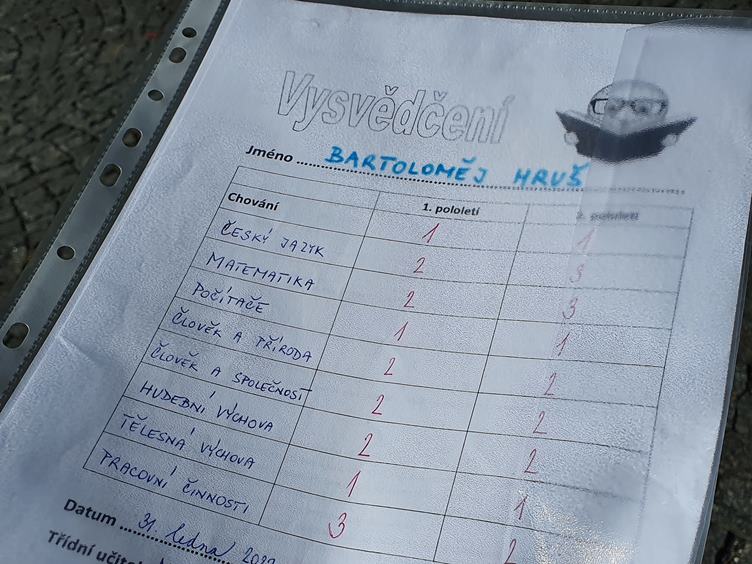 Vysvědčení
Jméno BARTOLOMĚJ HRUŠ
1. pololetí 2. pololetí
Chování 1 1
ČESKÝ JAZYK 2 3
MATEMATIKA 2 3
POČÍTAČE 1 1
ČLOVĚK A PŘÍRODA 2 2
ČLOVĚK A SPOLEČNOST 2 2
HUDEBNÍ VÝCHOVA 2 2
TĚLESNÁ VÝCHOVA 1 1
PRACOVNÍ ČINNOSTI 3 2
Datum 31. ledna
Třídní